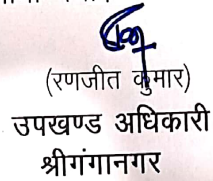 (रणजीत कुमार)
उपखण्ड अधिकारी
श्रीगंगानगर